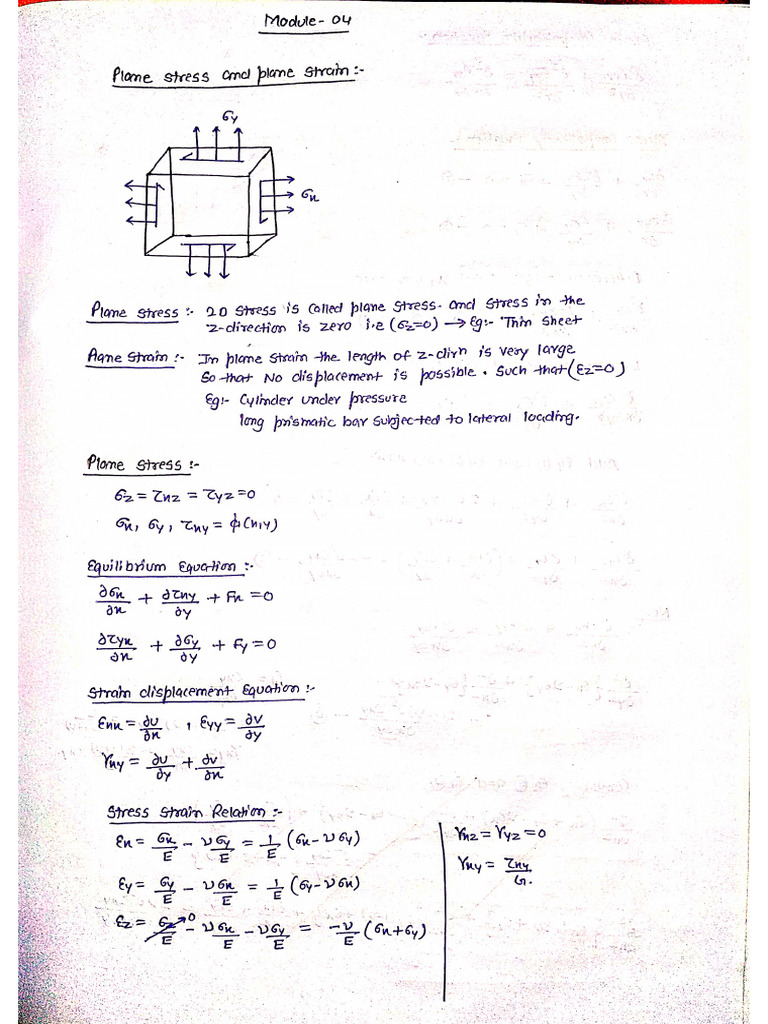 Module-04
Plane stress and plane strain:-
σy
σx
Plane stress :- 2D stress is called plane stress. and stress in the
z-direction is zero i.e (σz=0) → Eg:- Thin sheet
Plane strain :- In plane strain the length of z-dirn is very large
So that No displacement is possible. Such that (εz=0)
Eg:- Cylinder under pressure
long prismatic bar subjected to lateral loading.
Plane stress :-
σz = τxz = τyz = 0
σx, σy, τxy = ϕ(x,y)
Equilibrium Equation :-
∂σx/∂x + ∂τxy/∂y + Fx = 0
∂τyx/∂x + ∂σy/∂y + Fy = 0
Strain displacement Equation :-
εxx = ∂u/∂x , εyy = ∂v/∂y
γxy = ∂u/∂y + ∂v/∂x
Stress strain Relation :-
εx = σx/E - νσy/E = 1/E (σx - νσy)
εy = σy/E - νσx/E = 1/E (σy - νσx)
εz = σz/E →0 - νσx/E - νσy/E = -ν/E (σx+σy)
γxz = γyz = 0
γxy = τxy/G.